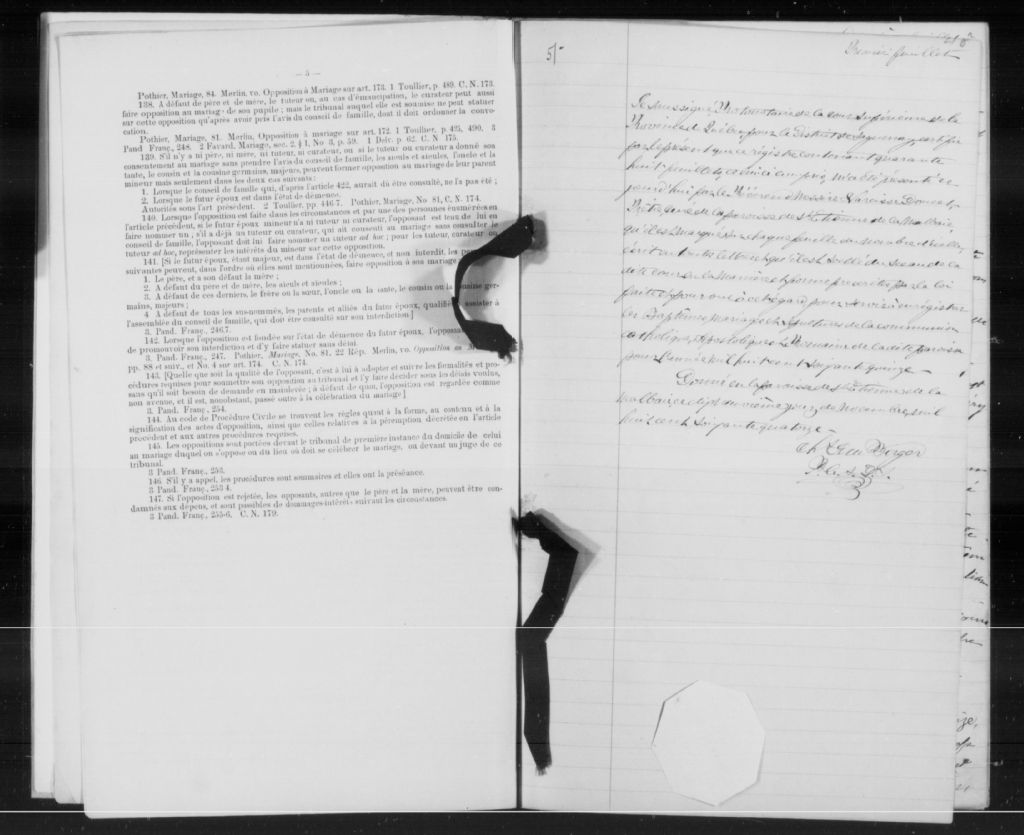 — 5 —
Pothier, Mariage, 84. Merlin, vo. Opposition à Mariage sur art. 173. 1 Toullier, p 489. C. N. 173.
138. A défaut de père et de mère, le tuteur ou, au cas d'émancipation, le curateur peut aussi
faire opposition au mariage de son pupile ; mais le tribunal auquel elle est soumise ne peut statuer
sur cette opposition qu'après avoir pris l'avis du conseil de famille, dont il doit ordonner la convo-
cation.
Pothier, Mariage, 81. Merlin, Opposition à mariage sur art. 172. 1 Toullier, p 425, 490. 3
Pand Franç., 248. 2 Favard, Mariage, sec. 2, § 1, No 3, p. 59. 1 Delv. p 62. C. N. 175.
139. S'il n'y a ni père, ni mère, ni tuteur, ni curateur, ou si le tuteur ou curateur a donné son
consentement au mariage sans prendre l'avis du conseil de famille, les aïeuls et aïeules, l'oncle et la
tante, le cousin et la cousine germains, majeurs, peuvent former opposition au mariage de leur parent
mineur mais seulement dans les deux cas suivants :
1. Lorsque le conseil de famille qui, d'après l'article 422, aurait dû être consulté, ne l'a pas été ;
2. Lorsque le futur époux est dans l'état de démence.
Autorités sous l'art précédent. 2 Toullier, pp. 446 7. Pothier, Mariage, No 81, C. N. 174.
140. Lorsque l'opposition est faite dans les circonstances et par une des personnes énumérées en
l'article précédent, si le futur époux mineur n'a ni tuteur ni curateur, l'opposant est tenu de lui en
faire nommer un ; s'il a déjà un tuteur ou curateur, qui ait consenti au mariage sans consulter le
conseil de famille, l'opposant doit lui faire nommer un tuteur ad hoc ; pour les tuteur, curateur ou
tuteur ad hoc, représenter les intérêts du mineur sur cette opposition.
141. [Si le futur époux, étant majeur, est dans l'état de démence, et non interdit, les
suivantes peuvent, dans l'ordre où elles sont mentionnées, faire opposition à son mariage
1. Le père, et à son défaut la mère ;
2. A défaut du père et de mère, les aïeuls et aïeules ;
3. A défaut de ces derniers, le frère ou la sœur, l'oncle ou la tante, le cousin ou la cousine ger-
mains, majeurs ;
4 A défaut de tous les sus-nommés, les parents et alliés du futur époux, qualifiés assister à
l'assemblée du conseil de famille, qui doit être consulté sur son interdiction.]
3. Pand. Franç., 246.7.
142. Lorsque l'opposition est fondée sur l'état de démence du futur époux, l'opposant
de promouvoir son interdiction et d'y faire statuer sans délai.
3. Pand. Franç., 247. Pothier, Mariage, No. 81, 22 Rép. Merlin, vo. Opposition au
pp. 88 et suiv., et No. 4 sur art. 174. C. N. 174.
143. [Quelle que soit la qualité de l'opposant, c'est à lui à adopter et suivre les formalités et pro-
cédures requises pour soumettre son opposition au tribunal et l'y faire décider sous les délais voulus,
sans qu'il soit besoin de demande en mainlevée ; à défaut de quoi, l'opposition est regardée comme
non avenue, et il est, nonobstant, passé outre à la célébration du mariage]
3. Pand. Franç., 254.
144. Au code de Procédure Civile se trouvent les règles quant à la forme, au contenu et à la
signification des actes d'opposition, ainsi que celles relatives à la péremption décrétée en l'article
précédent et aux autres procédures requises.
145. Les oppositions sont portées devant le tribunal de première instance du domicile de celui
au mariage duquel on s'oppose ou du lieu où doit se célébrer le mariage, ou devant un juge de ce
tribunal.
3 Pand. Franç., 253.
146. S'il y a appel, les procédures sont sommaires et elles ont la préséance.
3 Pand. Franç., 253 4.
147. Si l'opposition est rejetée, les opposants, autres que le père et la mère, peuvent être con-
damnés aux dépens, et sont passibles de dommages-intérêts suivant les circonstances.
3 Pand. Franç., 255-6. C. N. 179.
5
Premier feuillet
Je soussigné Protonotaire de la cour Supérieure de la
Province de Québec pour le District de Saguenay, certifie
par le présent que ce régistre contenant quarante
huit feuillets, celui ci compris, m'a été présenté ce
jourd'hui par le Révérend Messire Narcisse Doucet
Prêtre curé de la paroisse de St Etienne de la Malbaie
qu'il est marqué sur chaque feuillet du Numéro d'icelui,
écrit en toute lettres et qu'il est scellé du sceau de la
dite cour en la manière et forme prescrites par la loi
faite et pourvue à cet égard pour servir à enrégistrer
les Baptêmes Mariages et Sépultures de la communion
catholique, Apostolique et Romaine de la dite paroisse
pour l'année mil huit cent soixante quinze —
Donné en la paroisse de St Etienne de la
Malbaie ce dix neuvième jour de Novembre mil
huit cent soixante quatorze —
P. C. S. D. S.